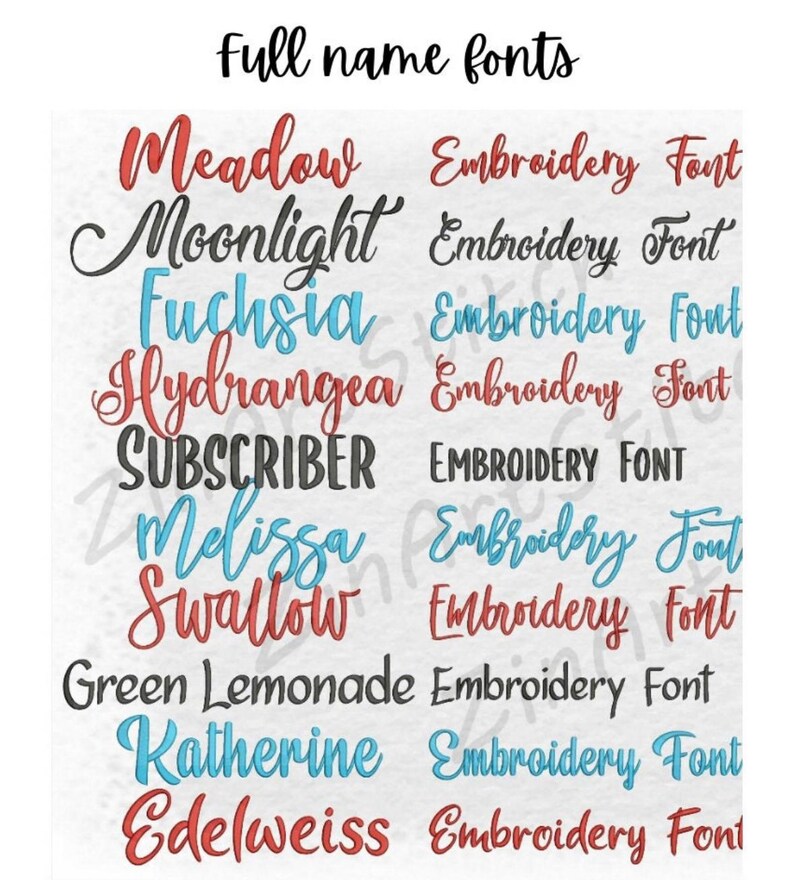 Full name fonts
Meadow Embroidery Font
Moonlight Embroidery Font
Fuchsia Embroidery Font
Hydrangea Embroidery Font
SUBSCRIBER EMBROIDERY FONT
Melissa Embroidery Font
Swallow Embroidery Font
Green Lemonade Embroidery Font
Katherine Embroidery Font
Edelweiss Embroidery Font
ZinArtStitch
ZinArtStitch
ZinArt